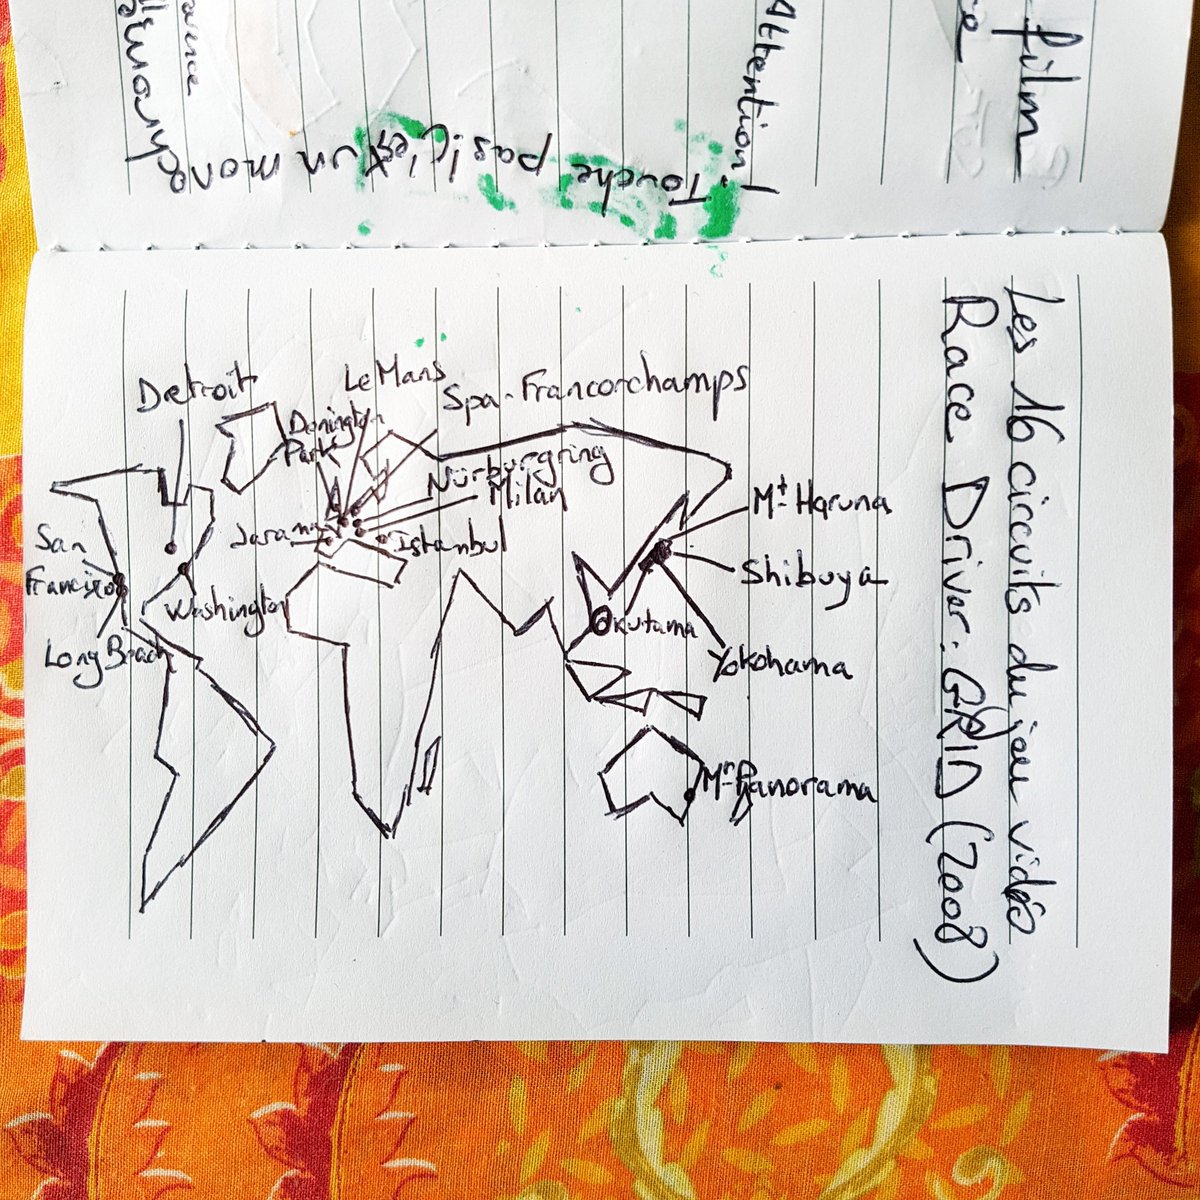 film
Attention!
Touche pas ! C'est un mono
chrome
Les 16 circuits du jeu vidéo
Race Driver : GRID (2008)
Detroit
Le Mans
Spa-Francorchamps
Donington
Park
Nürburgring
Milan
Jarama
Istanbul
San
Francisco
Washington
Long Beach
Mt Haruna
Shibuya
Okutama
Yokohama
Mt Panorama